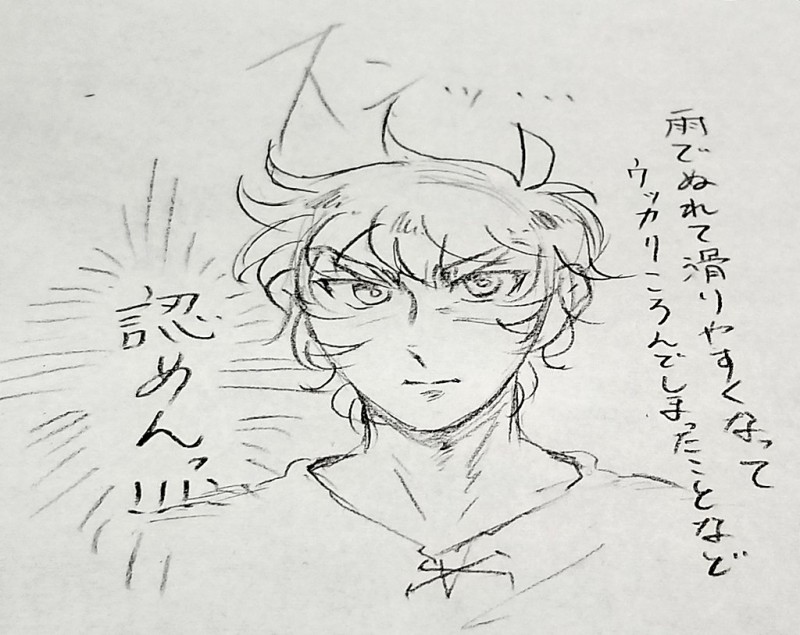 スンッ…
雨でぬれて滑りやすくなって
ウッカリころんでしまったことなど
認めんっ!!!!